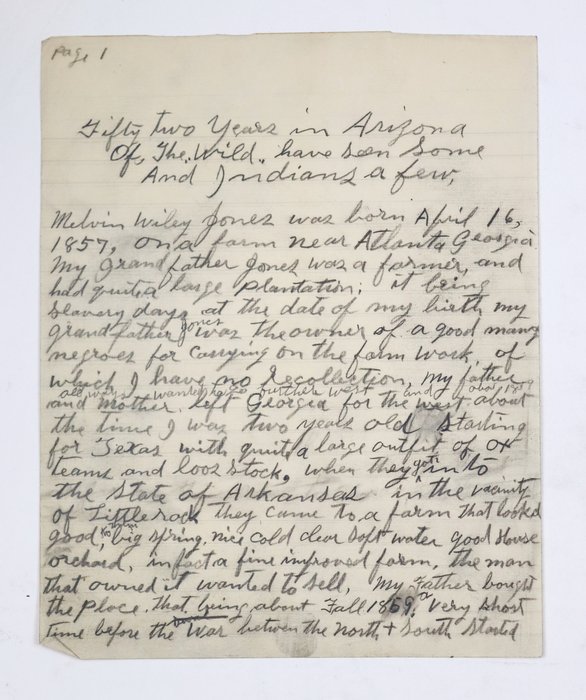 Page 1
Fifty two Years in Arizona
Of, The. Wild, have seen Some
And Indians a few,
Melvin Wiley Jones was born April 16,
1857, on a farm near Atlanta Georgia
My Grandfather Jones was a farmer, and
had quite a large plantation, it being
Slavery days, at the date of my birth my
grandfather Jones was the owner of a good many
negroes for carrying on the farm work, of
which I have no recollection, my father
always wanted further west and about 1859
and mother left Georgia for the west about
the time I was two years old Starting
for Texas with quite a large outfit of ox
teams and loos stock, when they got into
the State of Arkansas in the vacinity
of Littlerock they came to a farm that looked
good, to him big spring, nice cold clear soft water good House
orchard, in fact a fine improved farm, the man
that owned it wanted to sell, My Father bought
the place, that being about Fall 1859, a very short
time before the War between the north + South Started